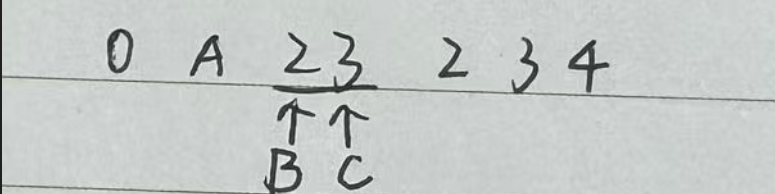 0 A 23 2 3 4
↑ ↑
B C